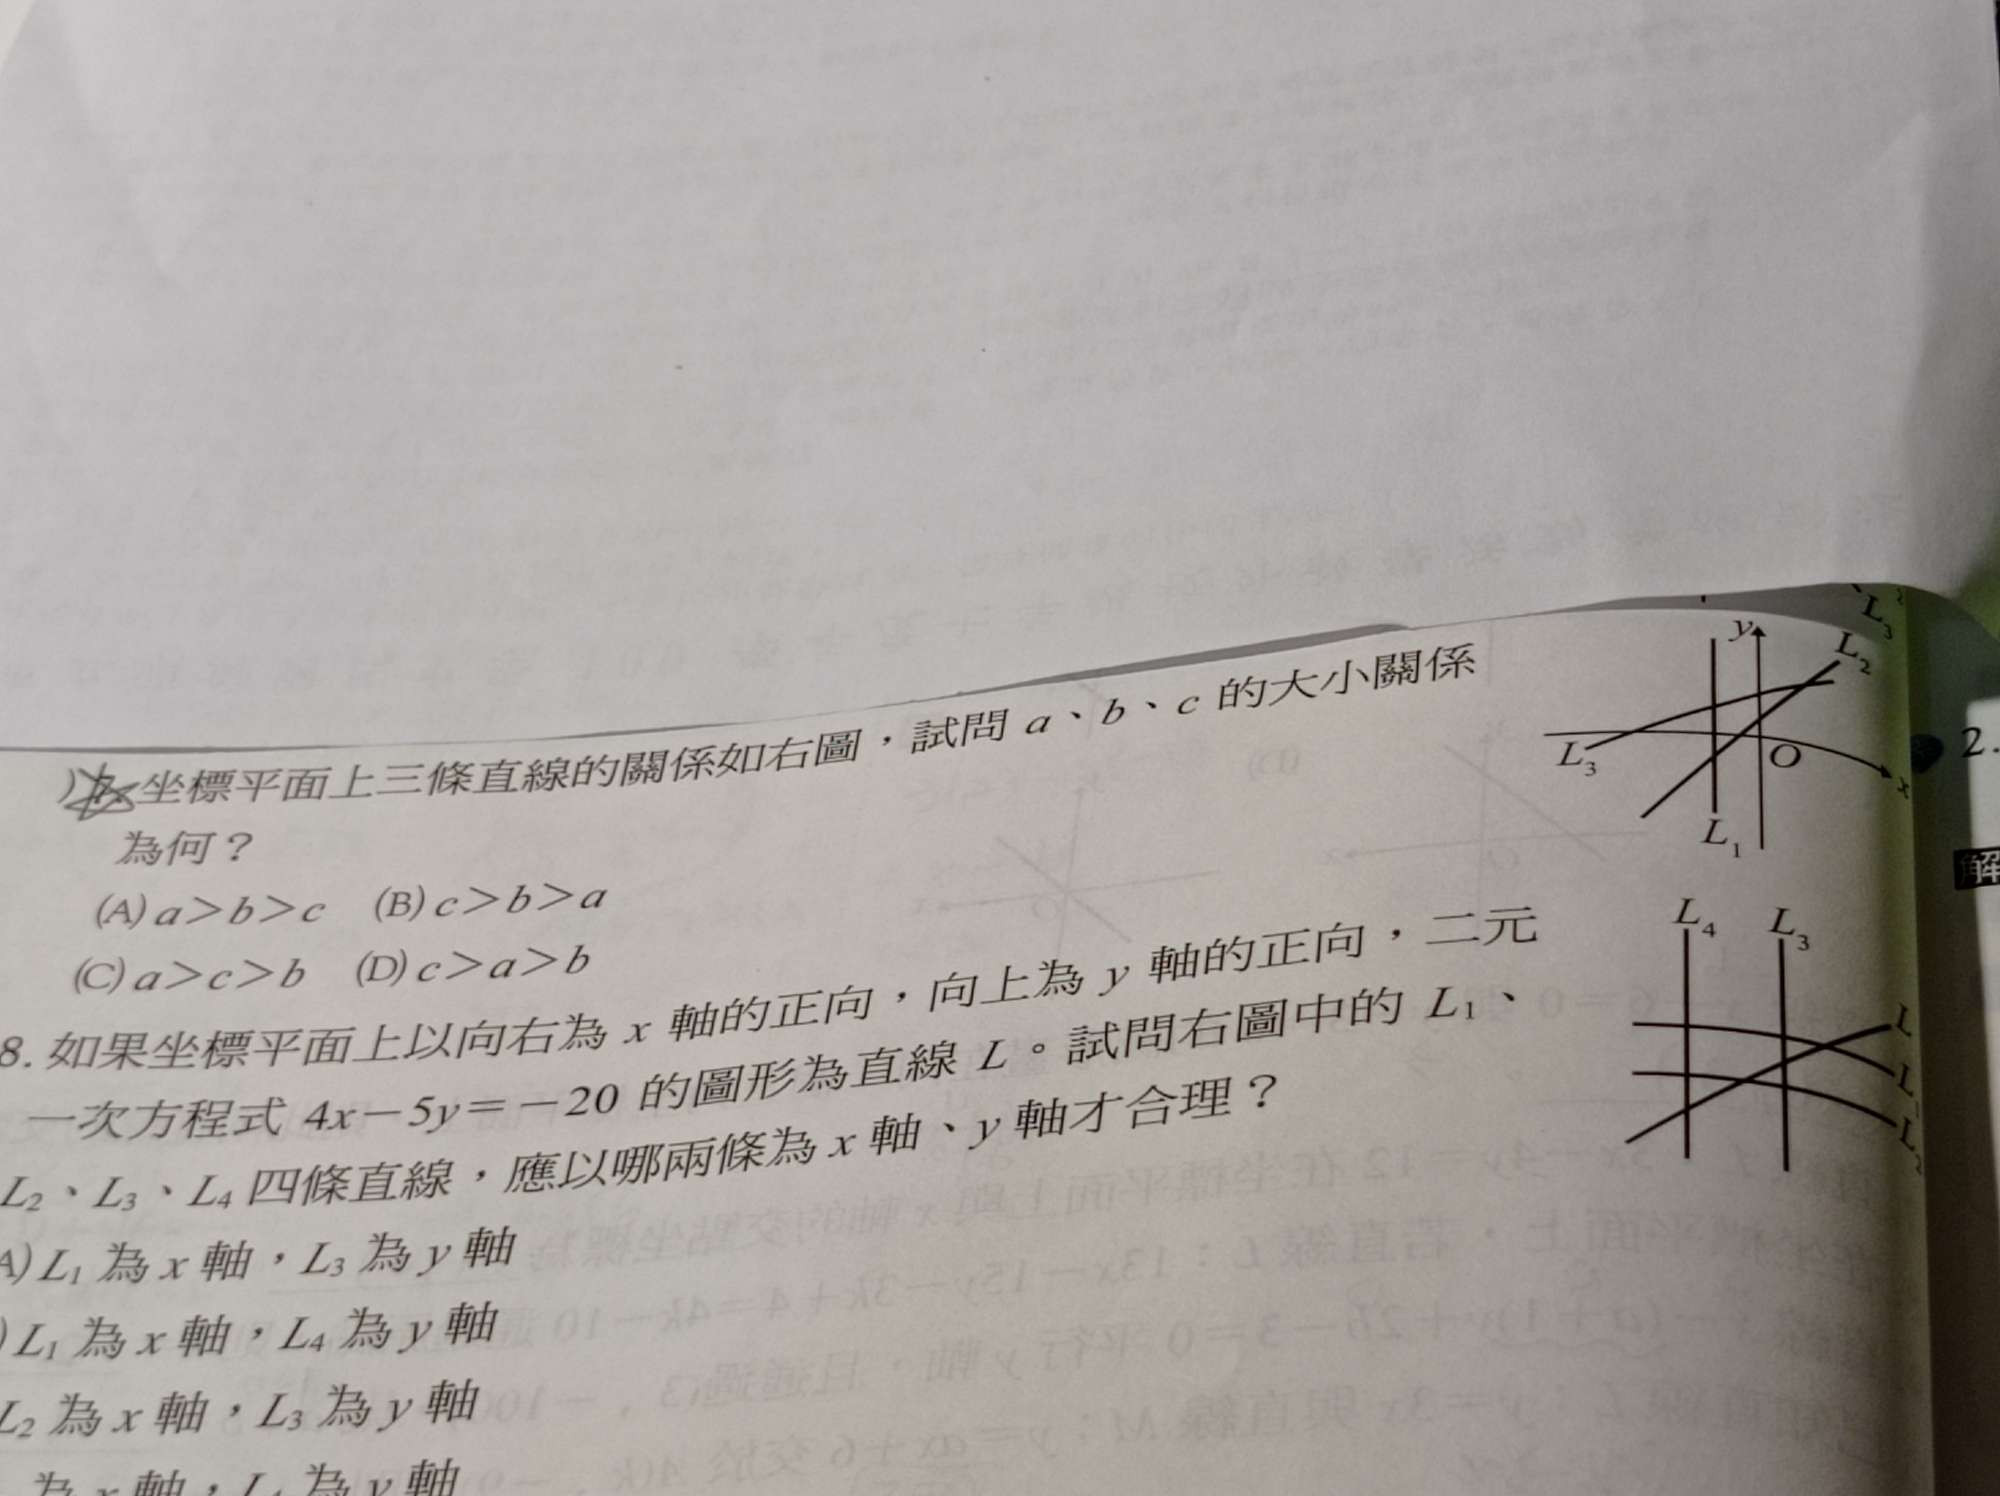 7. 坐標平面上三條直線的關係如右圖，試問 a、b、c 的大小關係
為何？
(A) a＞b＞c (B) c＞b＞a
(C) a＞c＞b (D) c＞a＞b
8. 如果坐標平面上以向右為 x 軸的正向，向上為 y 軸的正向，二元
一次方程式 4x－5y＝－20 的圖形為直線 L。試問右圖中的 L₁、
L₂、L₃、L₄ 四條直線，應以哪兩條為 x 軸、y 軸才合理？
A) L₁ 為 x 軸，L₃ 為 y 軸
) L₁ 為 x 軸，L₄ 為 y 軸
L₂ 為 x 軸，L₃ 為 y 軸
為 x 軸，L₄ 為 y 軸
L₃
y
L₂
L₃
O
x
L₁
L₄
L₃
L
L
L₂
2.
解